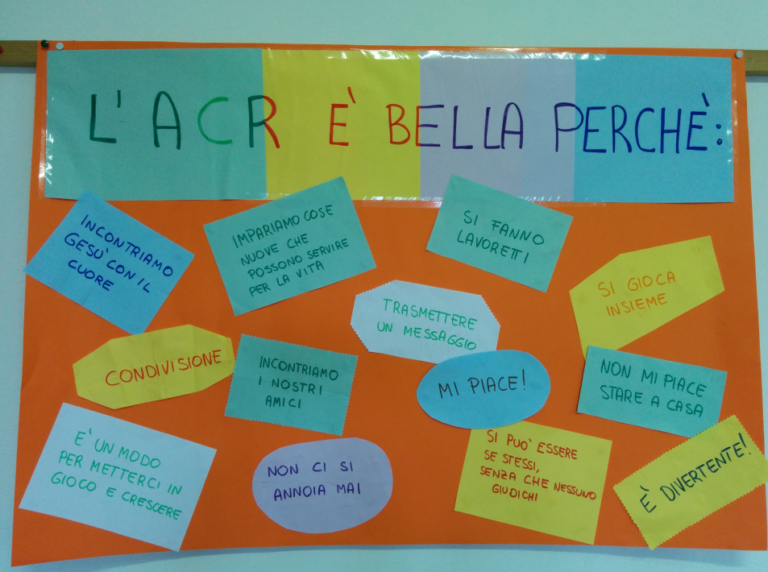 L'ACR È BELLA PERCHÈ:
INCONTRIAMO
GESU' CON IL
CUORE
IMPARIAMO COSE
NUOVE CHE
POSSONO SERVIRE
PER LA VITA
SI FANNO
LAVORETTI
SI GIOCA
INSIEME
TRASMETTERE
UN MESSAGGIO
CONDIVISIONE
INCONTRIAMO
I NOSTRI
AMICI
MI PIACE!
NON MI PIACE
STARE A CASA
E' UN MODO
PER METTERCI IN
GIOCO E CRESCERE
NON CI SI
ANNOIA MAI
SI PUO' ESSERE
SE STESSI,
SENZA CHE NESSUNO
GIUDICHI
È DIVERTENTE!